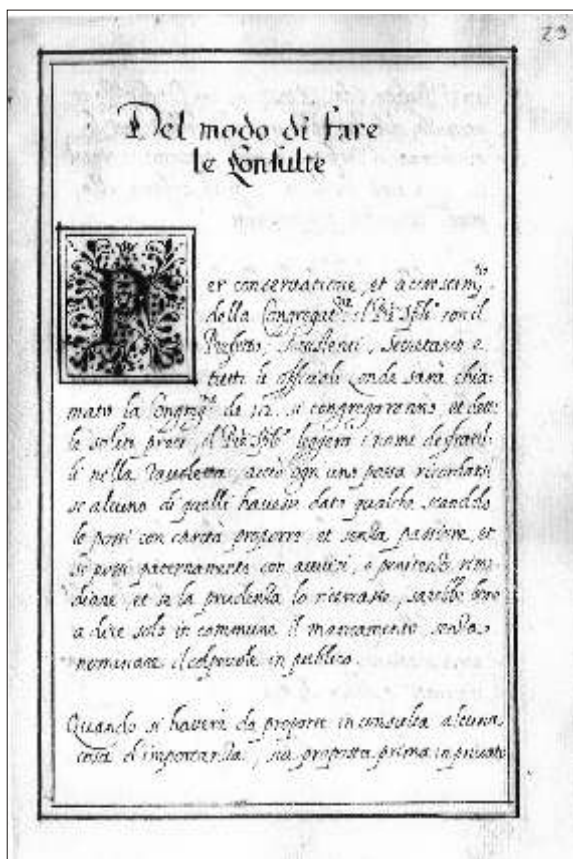 23
Del modo di fare
le Consulte
Per conservatione, et accrescim.to
della Congregat.ne il
Prefetto, Assistenti, Secretario e
tutti le officiali onde sarà chia=
mato la Congreg.ne de 12. si congregaranno, et dette
le solite preci, il leggerà i nomi de fratel=
li nella tavoletta, acciò ogn uno possa ricordarsi
se alcuno di quelli havesse dato qualche scandolo
lo possi con carità proporre et senza passione, et
si possi paternamente con avvisi, o penitenze rime=
diare et se la prudenza lo ricercasse, sarebbe bene
a dire solo in commune il mancamento, senza
nominare il colpevole in publico.
Quando si haverà da proporre in consulta alcuna
cosa d'importanza, sia proposta prima in privato